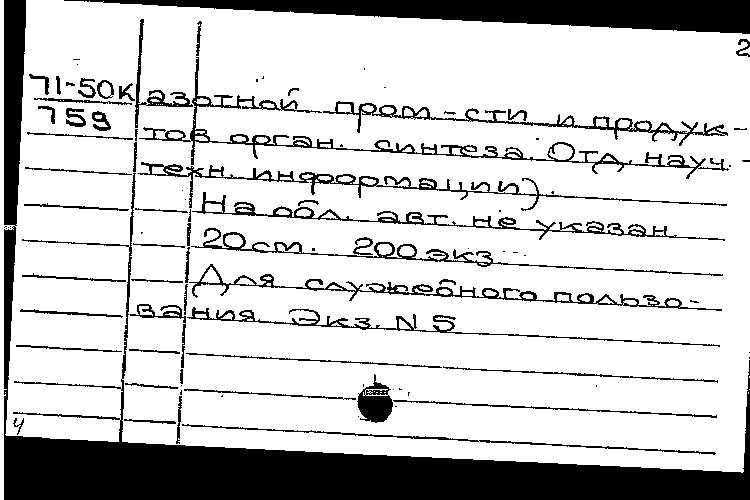 2
71-50К азотной пром-сти и продук-
759 тов орган. синтеза. Отд. науч.-
техн. информации).
На обл. авт. не указан
20 см. 200 экз
Для служебного пользо-
вания Экз. N 5
4